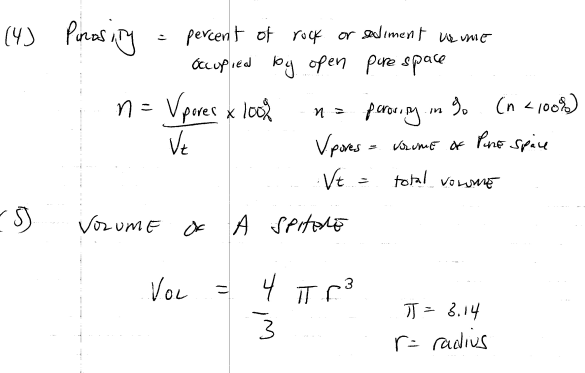 (4) Porosity = percent of rock or sediment volume
occupied by open pore space
n = Vpores x 100% n = porosity in % (n < 100%)
Vt Vpores = volume of Pore space
Vt = total volume
(5) VOLUME OF A SPHERE
VOL = 4 π r³
3 π = 3.14
r = radius